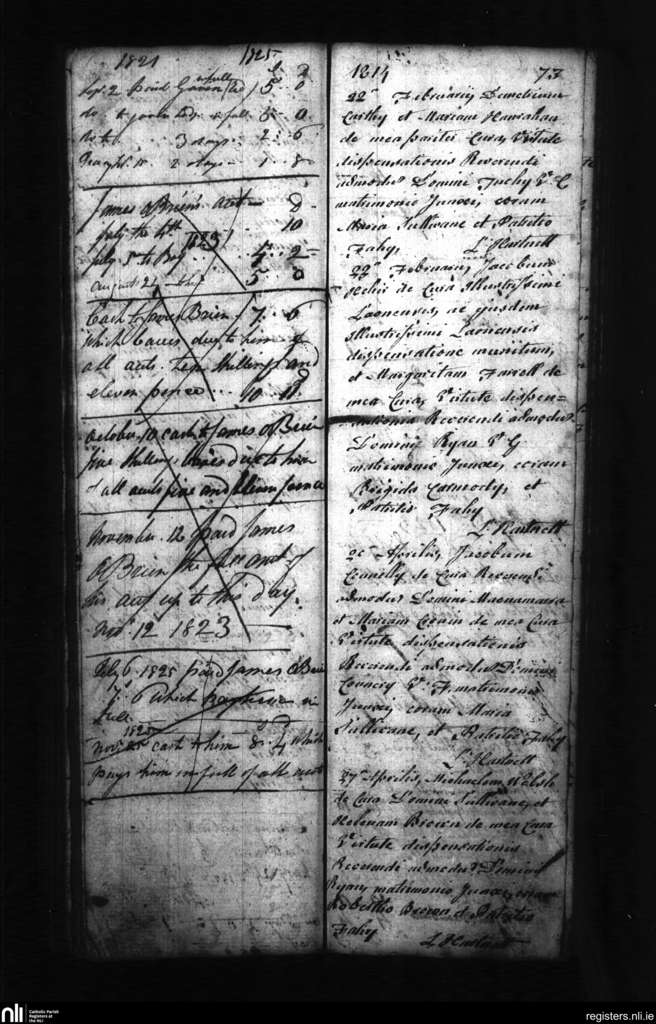 1821 1825
s d
Sepr. 2 paid in full 5 0
do to 5 0
do to 3 days 2 6
2 days 1 8
James OBrien's acct
July the 4th 1823 10
July 5th to Boy 5 2
August 24 5 0
Cash to James Brien 7 6
Which leaves due to him of
all acts. ten Shillings and
eleven pence 10 11
October 10 cash to James OBrien
five Shillings leaves due to him
of all acts five and eleven pence
November 12 paid James
OBrien the amt of
his act up to this day.
Novr. 12 1823
July 6 1825 paid James OBrien
7 6 which in
full
1825 s d
Novr. cash to him 8 4 which
pays him in full of all acct
1814 73
22° Februarii,
Carthy et Mariam Hanrahan
de mea pariter Cura, Virtute
dispensationis Reverendi
admodum Domini Tuohy V. G
matrimonio Junxi, coram
Maria Sullivane et Patritio
Fahy, L Hartnett
22° Februarii, Jacobum
de Cura Illustrissimi
Laonensis, ac ejusdem
Illustrissimi Laonensis
dispensatione munitum,
et Margaritam Farrell de
mea Cura, Virtute dispen=
sationis Reverendi admodum
Domini Ryan V. G
matrimonio Junxi, coram
Brigida Carmody, et
Patritio Fahy
L Hartnett
Aprilis, Jacobum
Connelly de Cura Reverendi
admodum Domini Macnamara
et Mariam Cronin de mea Cura
Virtute dispensationis
Reverendi admodum Domini
V. F. matrimonio
Junxi, coram Maria
Sullivane, et Patritio Fahy
L Hartnett
27° Aprilis, Michaelem Welsh
de Cura Domini Sullivane, et
Brown de mea Cura
Virtute dispensationis
Reverendi admodum Domini
Ryan, matrimonio Junxi, coram
Robertho Brown et Patritio
Fahy
L Hartnett
nli Catholic Parish
Registers at
the NLI
registers.nli.ie